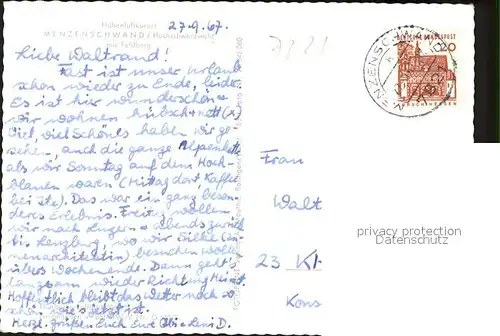 Höhenluftkurort
27.9.67.
MENZENSCHWAND / Hochschwarzwald
mit Feldberg
Liebe Waltraud!
Fast ist unser Urlaub
schon wieder zu Ende, leider.
Es ist hier wunderschön +
wir wohnen hübsch + nett (x)
Viel, viel Schönes haben wir ge-
sehen, auch die ganze Alpenkette
als wir Sonntag auf dem Hoch-
blauen waren (Mittag dort Kaffee
bei ). Das war ein ganz beson-
deres Erlebnis. Freitag wollen
wir nach Luzern + abends zurück
bis Lenzburg, wo wir Silke (In-
nenarchitektin) besuchen wollen
übers Wochenende. Dann geht's
langsam wieder Richtung Heimat.
Hoffentlich bleibt das Wetter noch so
schön wie's jetzt ist.
Herzl. Grüßen Euch Eure + Leni D.
MENZENSCHWAND
DEUTSCHE BUNDESPOST
20
Frau
Walt
23 Kl
Kons
privacy protection
Datenschutz